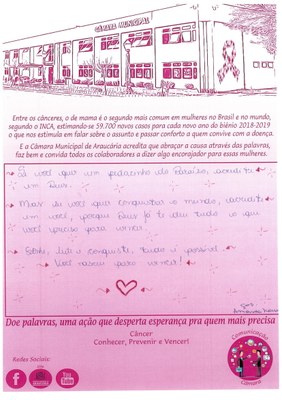 CÂMARA MUNICIPAL
Entre os cânceres, o de mama é o segundo mais comum em mulheres no Brasil e no mundo,
segundo o INCA, estimando-se 59.700 novos casos para cada novo ano do biênio 2018-2019
o que nos estimula em falar sobre o assunto e passar conforto a quem convive com a doença.
E a Câmara Municipal de Araucária acredita que abraçar a causa através das palavras,
faz bem e convida todos os colaboradores a dizer algo encorajador para essas mulheres.
Se você quer um pedacinho do Paraíso, acredite
em Deus.
Mas se você quer conquistar o mundo, acredite
em você, porque Deus já te deu tudo o que
você precisa para vencer.
Sonhe, lute e conquiste, tudo é possível.
Você nasceu para vencer!
Doe palavras, uma ação que desperta esperança pra quem mais precisa
Câncer
Conhecer, Prevenir e Vencer!
Redes Sociais:
f
You Tube
Comunicação
Câmara